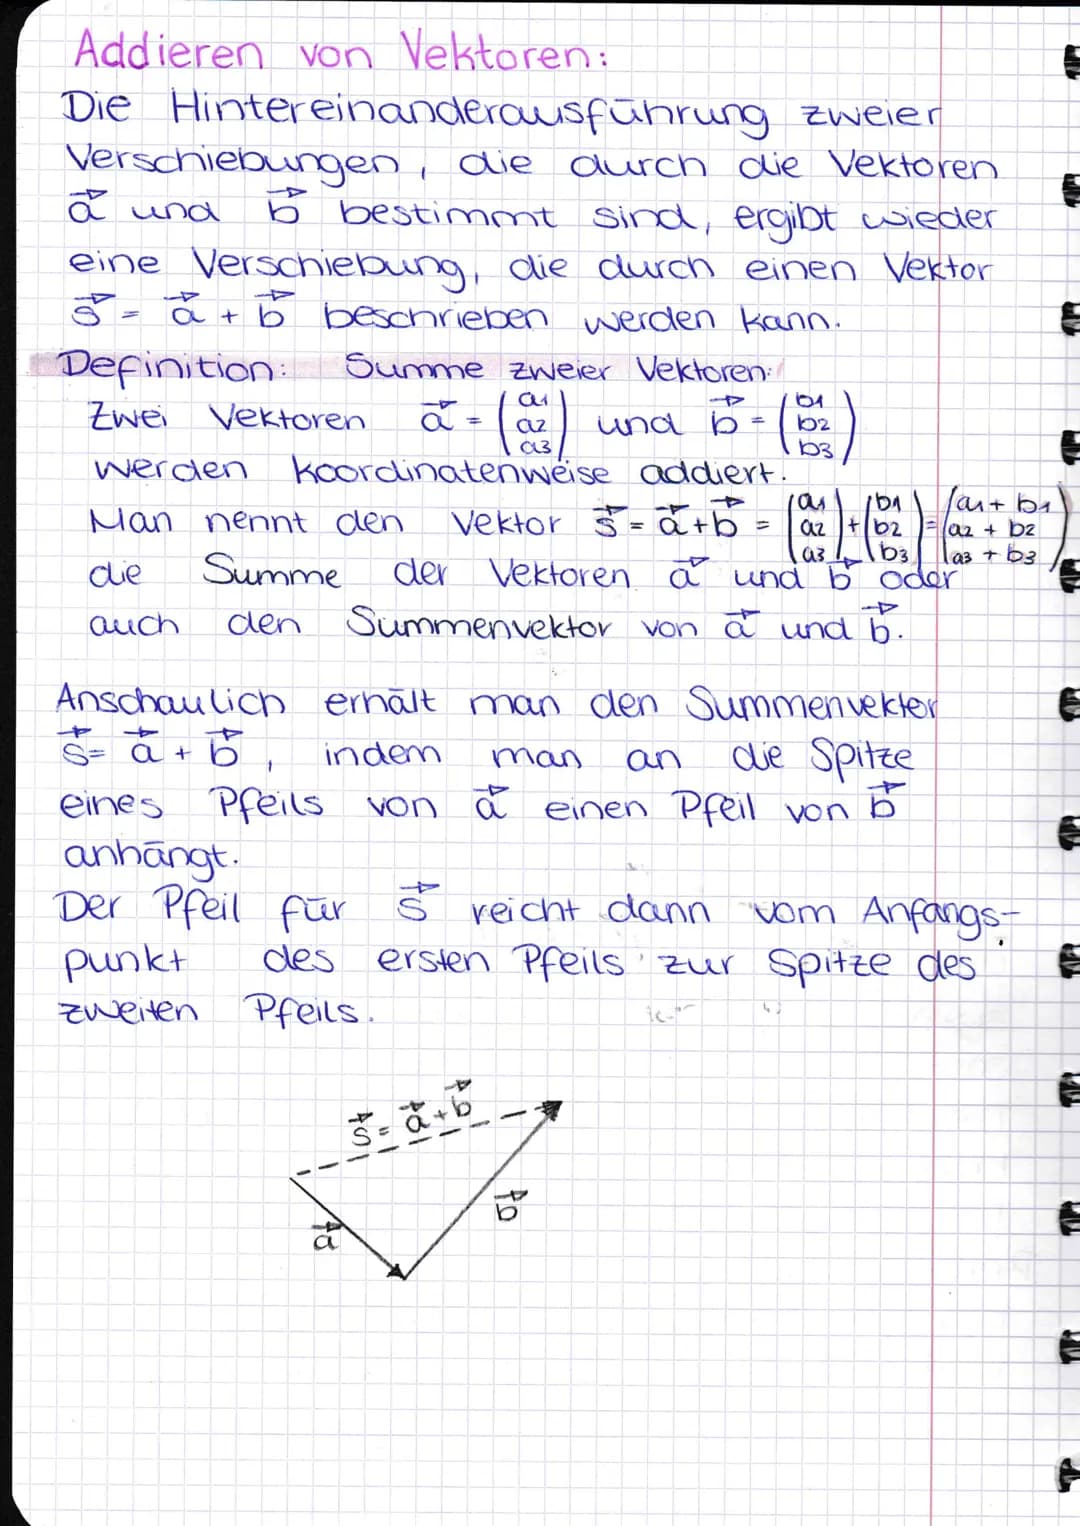 Addieren von Vektoren:
Die Hintereinanderausführung zweier
Verschiebungen, die durch die Vektoren
a⃗ und b⃗ bestimmt sind, ergibt wieder
eine Verschiebung, die durch einen Vektor
s⃗ = a⃗ + b⃗ beschrieben werden kann.
Definition: Summe zweier Vektoren:
Zwei Vektoren a⃗ = (a1 a2 a3) und b⃗ = (b1 b2 b3)
werden koordinatenweise addiert.
Man nennt den Vektor s⃗ = a⃗ + b⃗ = (a1 a2 a3) + (b1 b2 b3) = (a1 + b1 a2 + b2 a3 + b3)
die Summe der Vektoren a⃗ und b⃗ oder
auch den Summenvektor von a⃗ und b⃗.
Anschaulich erhält man den Summenvektor
s⃗ = a⃗ + b⃗, indem man an die Spitze
eines Pfeils von a⃗ einen Pfeil von b⃗
anhängt.
Der Pfeil für s⃗ reicht dann vom Anfangs-
punkt des ersten Pfeils zur Spitze des
zweiten Pfeils.
s⃗ = a⃗ + b⃗
b⃗
a⃗